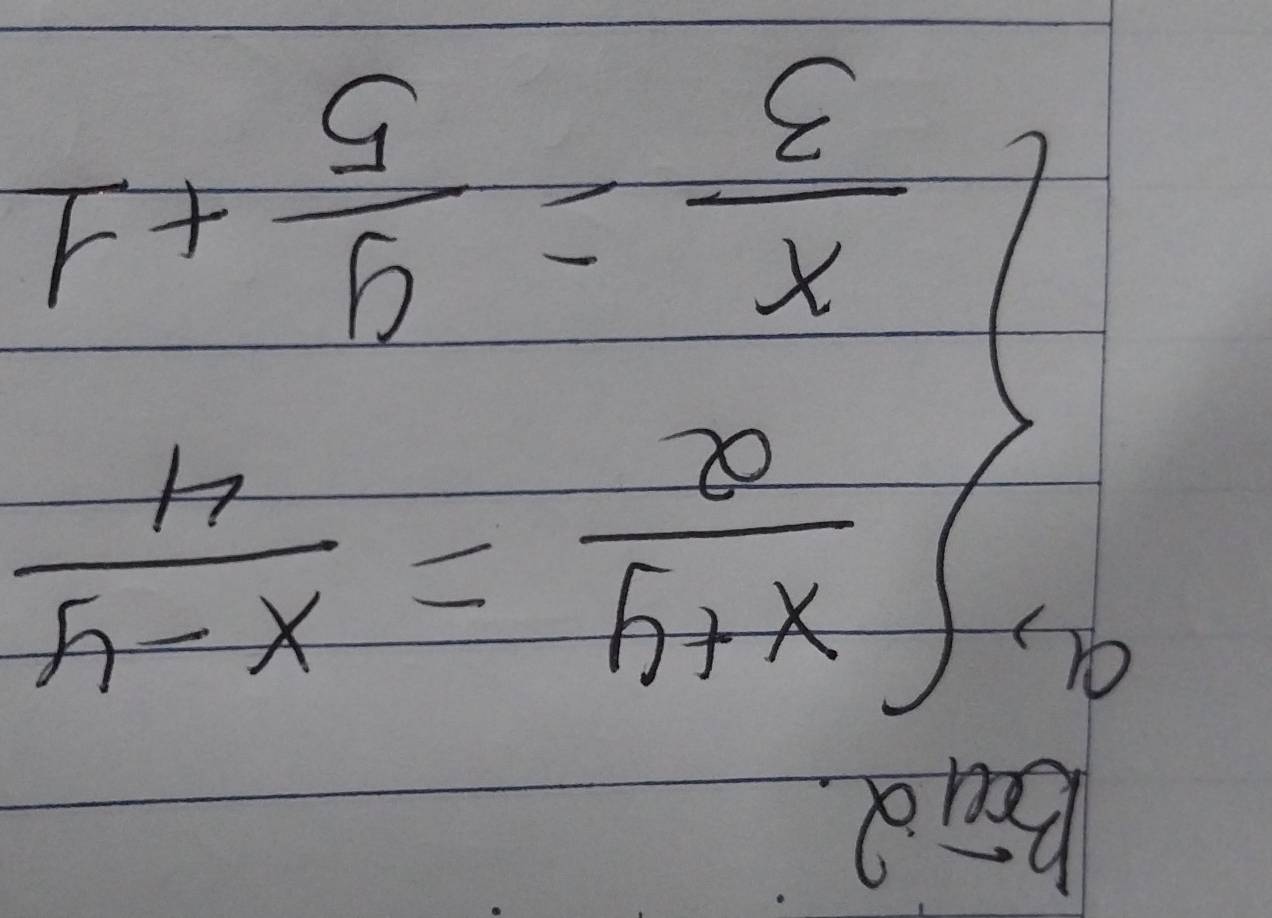 Bài 2.
a, { (x+y)/2 = (x-y)/4
x/3 = y/5 + 1